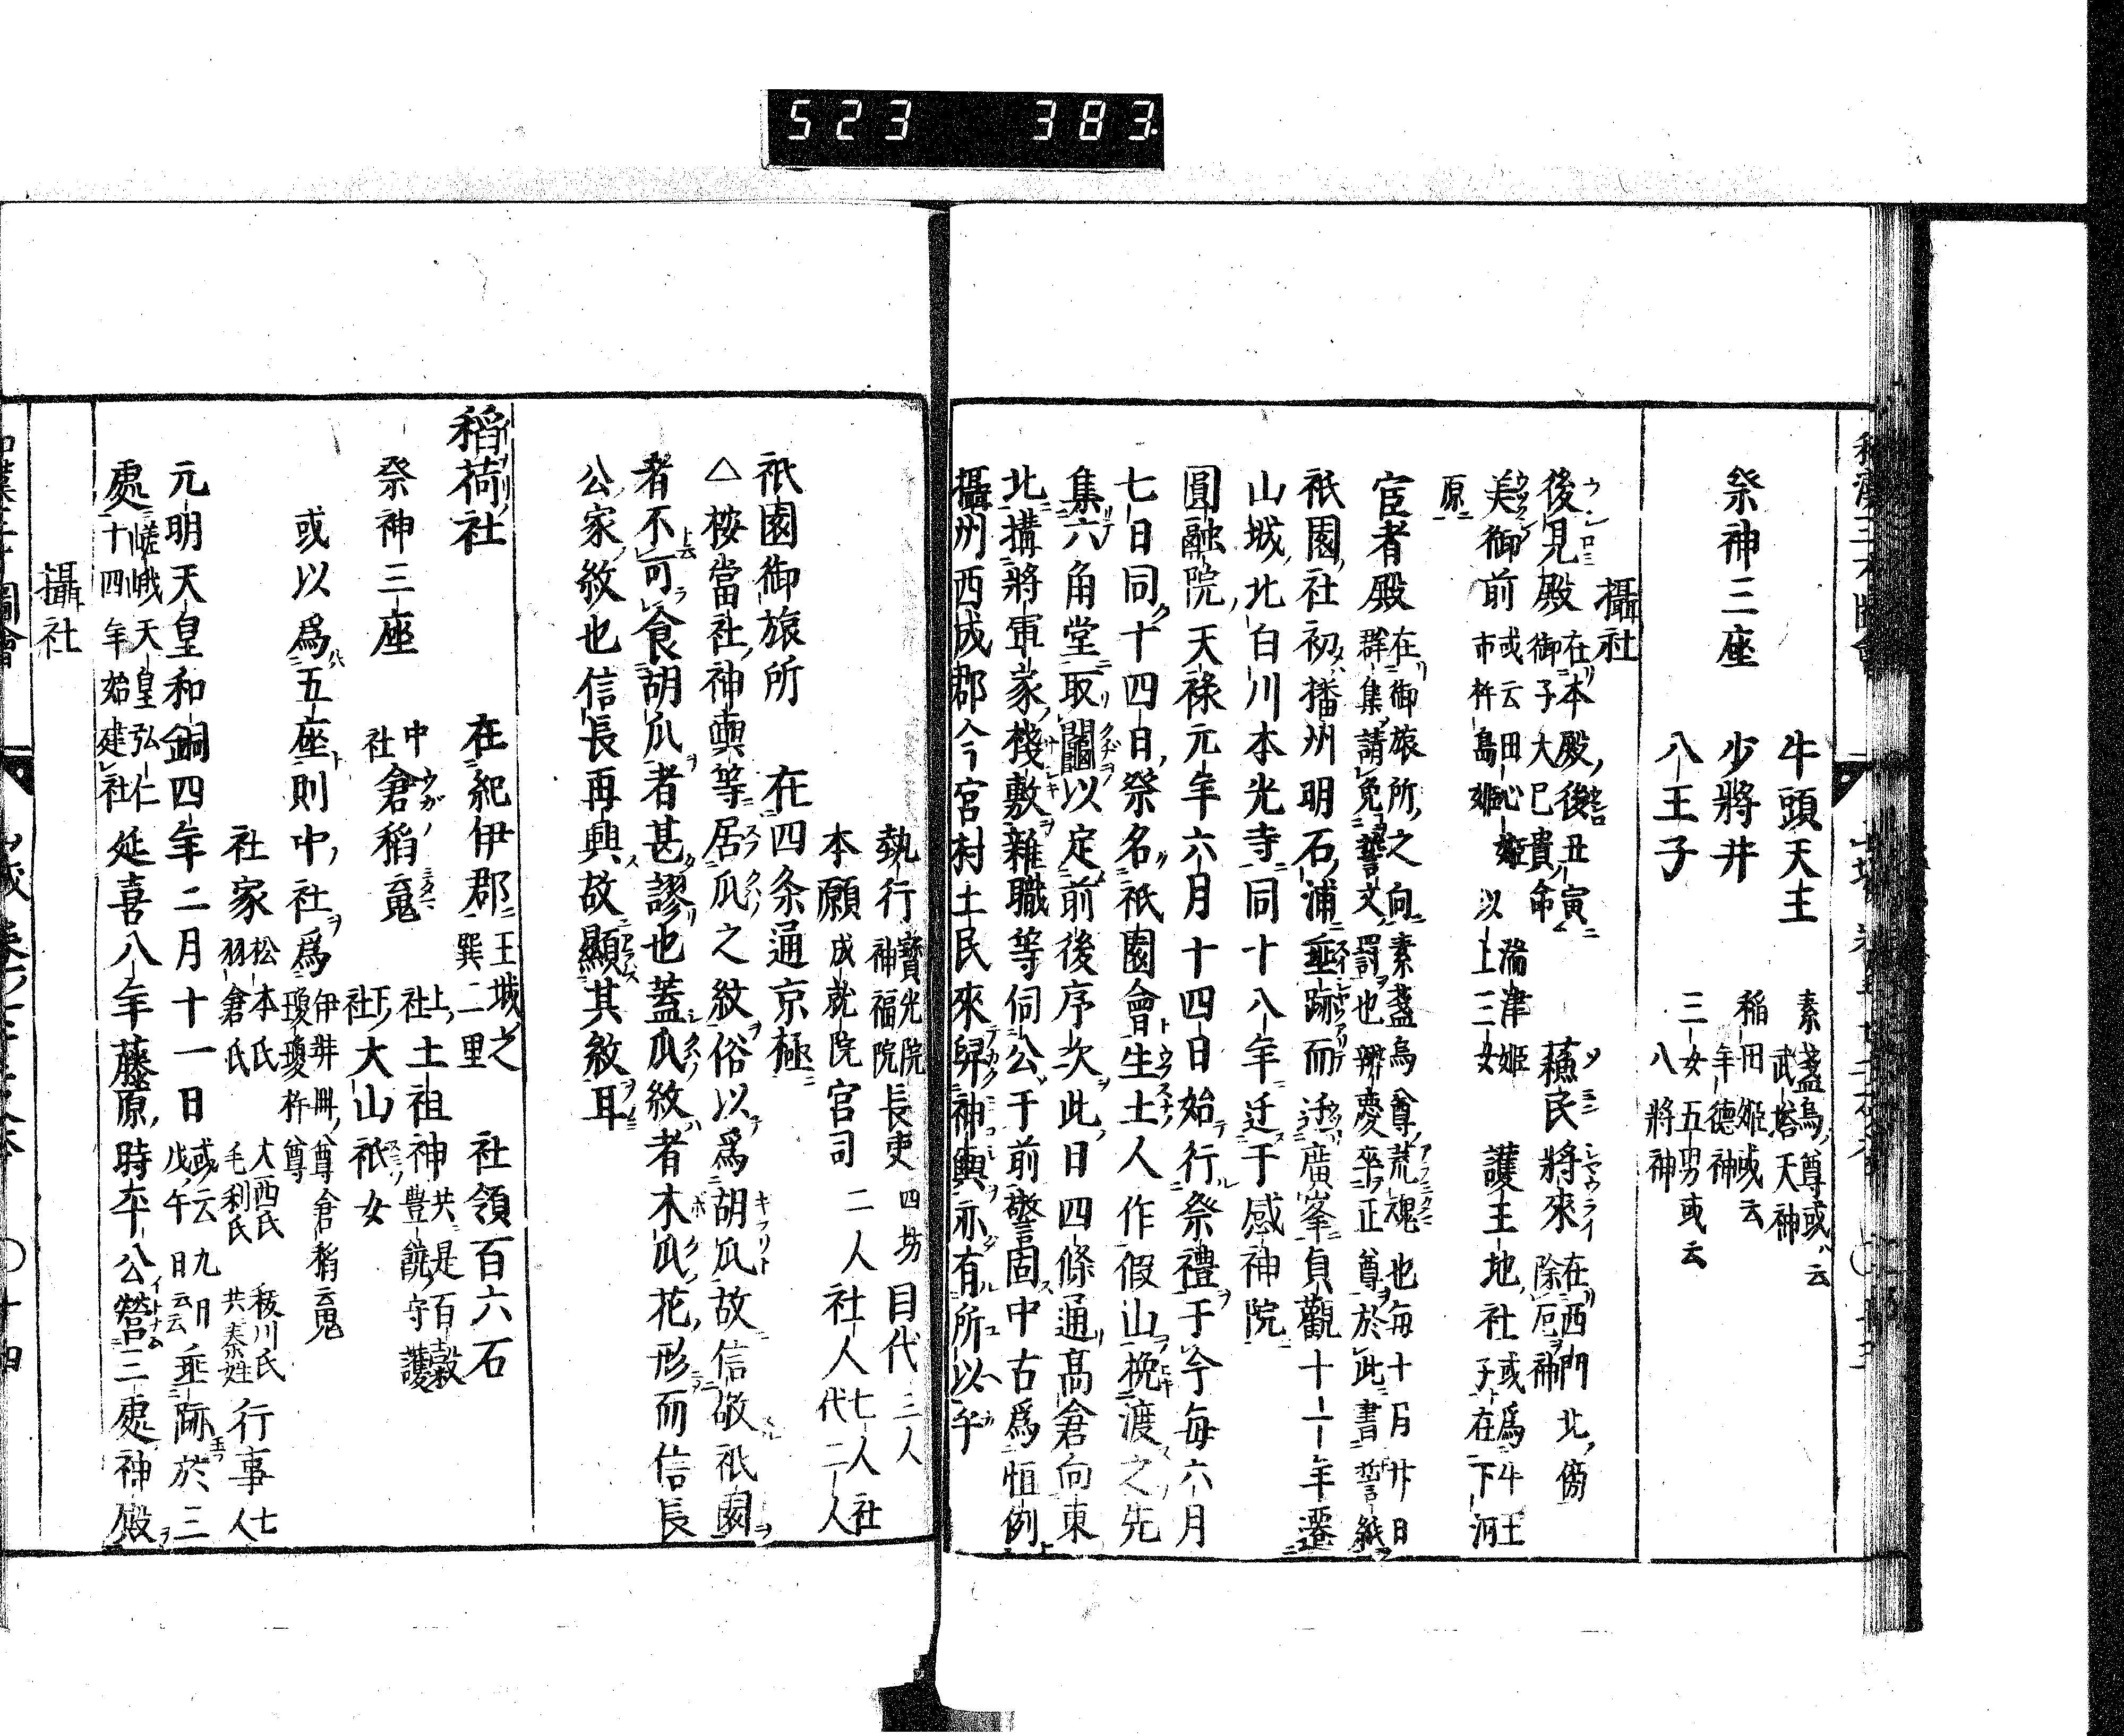 523 383
牛頭天王 素盞烏尊或云武塔天神
祭神三座 少將井 稲田姫或云年德神
八王子 三女五男或云八將神
攝社
後見殿 在本殿後丑寅御子大巳貴命 蘓民將來 在西門北傍除厄神
美御前 或云田心姫 湍津姫市杵島姫 以上三女 護王地社 或爲牛王子在下河
原
宦者殿 在御旅所之向素盞烏尊荒魂也每十月廿日群集請免誓文罰也辨慶卒正尊於此書誓紙
祇園社初播州明石浦垂跡而迁廣峯貞觀十一年遷
山城北白川本光寺同十八年迁于感神院
圓融院天祿元年六月十四日始行祭禮于今每六月
七日同十四日祭名祇園會生土人作假山挽渡之先
集六角堂取鬮以定前後序次此日四條通髙倉向東
北搆將軍家棧敷雜職等伺公于前警固中古爲恒例
攝州西成郡今宮村土民來舁神輿亦有所以乎
執行 寶光院神福院 長吏 四坊 目代 三人
本願 成就院 官司 二人 社人 七人 社代 二人
祇園御旅所 在四条通京極
△桉當社神輿等居瓜之紋俗以爲胡瓜故信敬祇園
者不可食胡瓜者甚謬也蓋瓜紋者木瓜花形而信長
公家紋也信長再興故顯其紋耳
稻荷社 在紀伊郡 王城之巽二里 社領百六石
祭神三座 中社 倉稻䰠 上社 土祖神 共是百穀豊饒守護 下社 大山祇女
或以爲五座則中社爲 伊弉冊尊倉稻云䰠瓊瓊杵尊
社家 松本氏 大西氏 秡川氏羽倉氏 毛利氏 共秦姓 行事 七人
元明天皇和銅四年二月十一日 或云九日戊午日云云 垂跡於三
處 嵯峨天皇弘仁十四年始建社 延喜八年藤原時平公營三處神殿
攝社